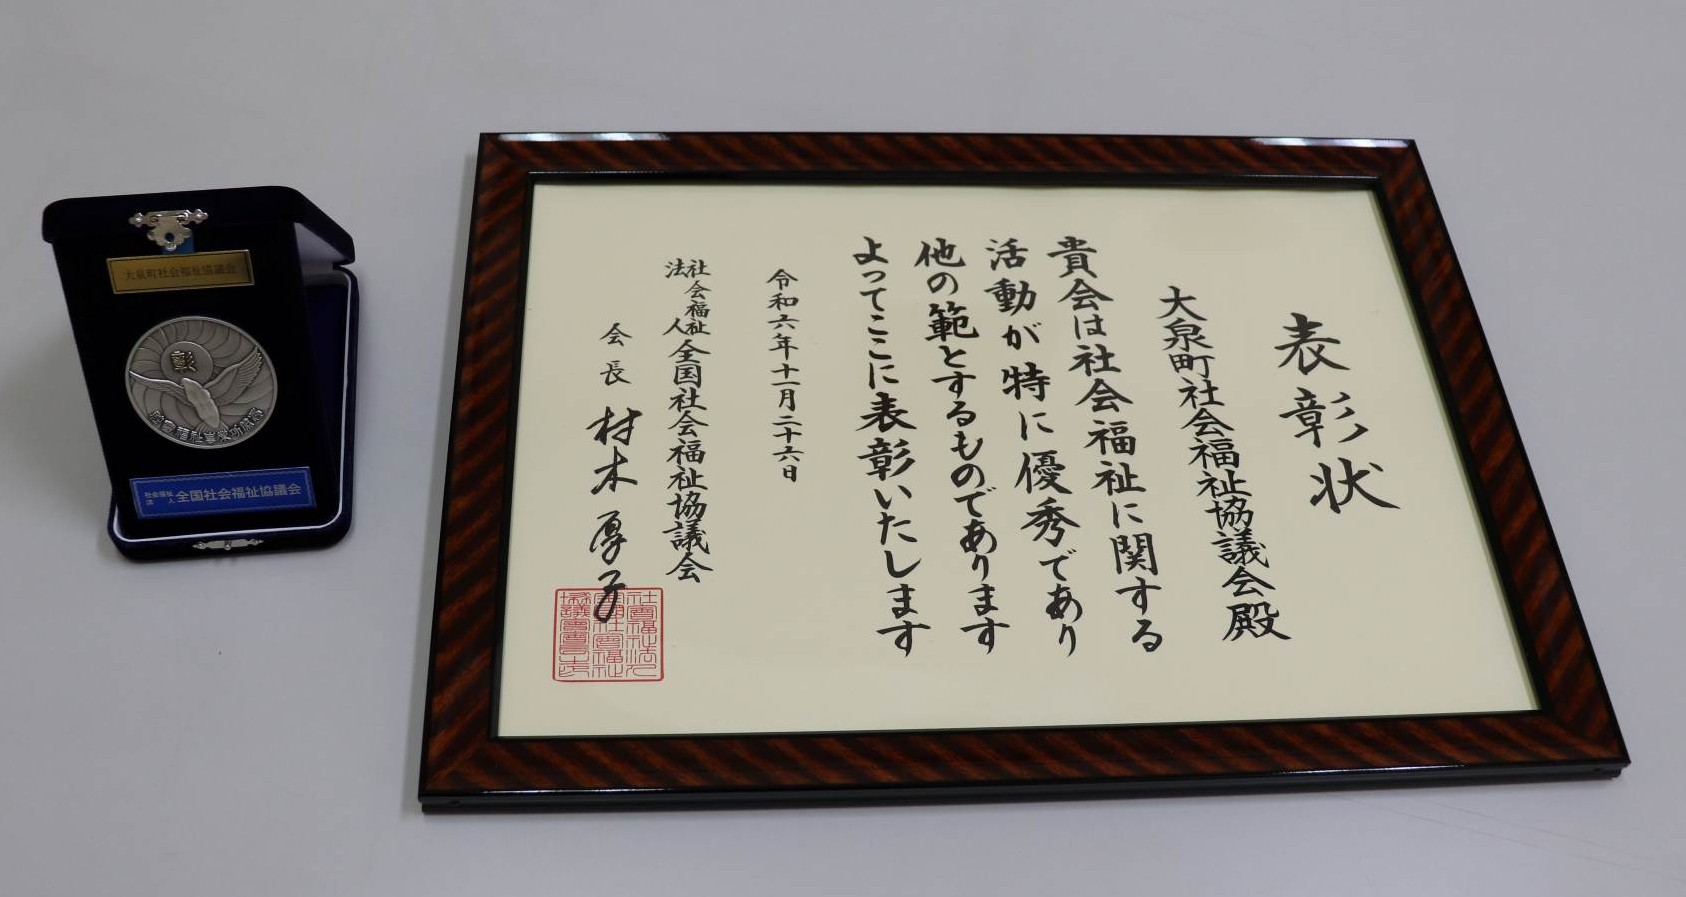 表彰状
大泉町社会福祉協議会殿
貴会は社会福祉に関する
活動が特に優秀であり
他の範とするものであります
よってここに表彰いたします
令和六年十一月二十六日
社会福祉法人全国社会福祉協議会
会長 村木厚子
大泉町社会福祉協議会
彰
社会福祉法人 全国社会福祉協議会